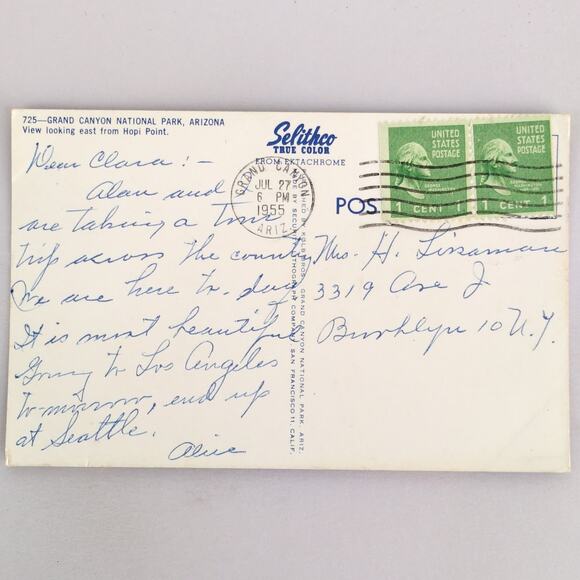 725—GRAND CANYON NATIONAL PARK, ARIZONA
View looking east from Hopi Point.
Selithco
TRUE COLOR
FROM EKTACHROME
GRAND CANYON
JUL 27
6 PM
1955
ARIZ.
UNITED
STATES
POSTAGE
1 CENT 1
UNITED
STATES
POSTAGE
1 CENT 1
POS
Dear Clara:-
Alan and
are taking a
trip across the country
We are here to-day
It is most beautiful
Going to Los Angeles
to-morrow, end up
at Seattle.
Alice
KOLB BROS. GRAND CANYON NATIONAL PARK, ARIZ.
LITHOGRAPH COMPANY, SAN FRANCISCO 11, CALIF.
Mrs. H. Lissaman
3319 Ave J
Brooklyn 10 N.Y.